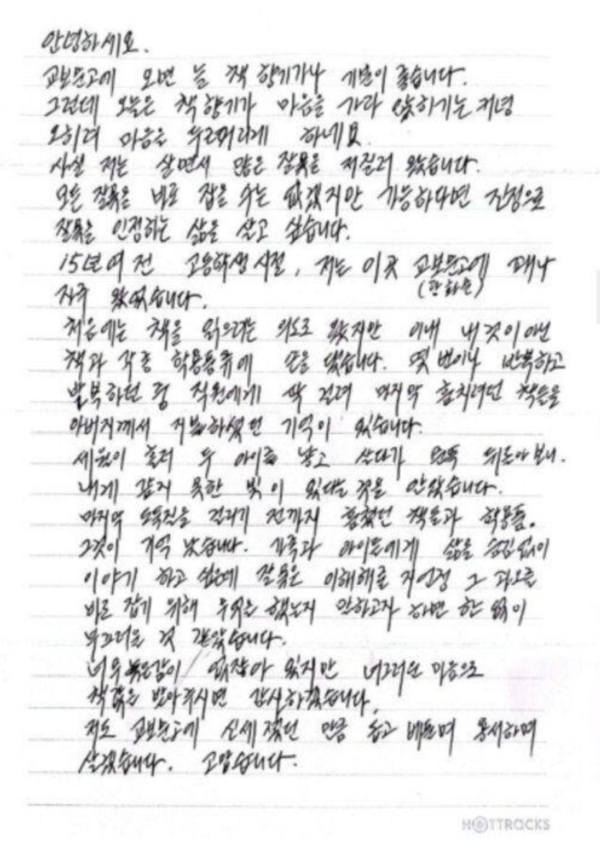 안녕하세요.
교보문고에 오면 늘 책 향기가나 기분이 좋습니다.
그런데 오늘은 책 향기가 마음을 가라 앉히기는 커녕
오히려 마음을 무겁게 하네요.
사실 저는 살면서 많은 잘못을 저질러 왔습니다.
모든 잘못을 바로 잡을 수는 없겠지만 가능하다면 진정으로
잘못을 인정하는 삶을 살고 싶습니다.
15년여 전 고등학생 시절, 저는 이곳 교보문고에 꽤나
(광화문)
자주 왔었습니다.
처음에는 책을 읽으려는 의도로 왔지만 이내 내것이 아닌
책과 각종 학용품류에 손을 댔습니다. 몇 번이나 반복하고
반복하던 중 직원에게 딱 걸려 마지막 훔치려던 책들을
아버지께서 지불하셨던 기억이 있습니다.
세월이 흘러 두 아이를 낳고 살다가 문득 뒤돌아 보니.
내게 갚지 못한 빚이 있다는 것을 알았습니다.
마지막 도둑질을 걸리기 전까지 훔쳤던 책들과 학용품.
그것이 기억 났습니다. 가족과 아이들에게 삶을 숨김없이
이야기 하고 싶은데 잘못은 이해해줄 지언정 그 과오를
바로 잡기 위해 무엇을 했는지 말하고자 하면 한 없이
부끄러울 것 같았습니다.
너우 늦은감이 없잖아 있지만 너그러운 마음으로
책값을 받아주시면 감사하겠습니다.
저도 교보문고에 신세졌던 만큼 돕고 베풀며 용서하며
살겠습니다. 고맙습니다.
HOTTRACKS